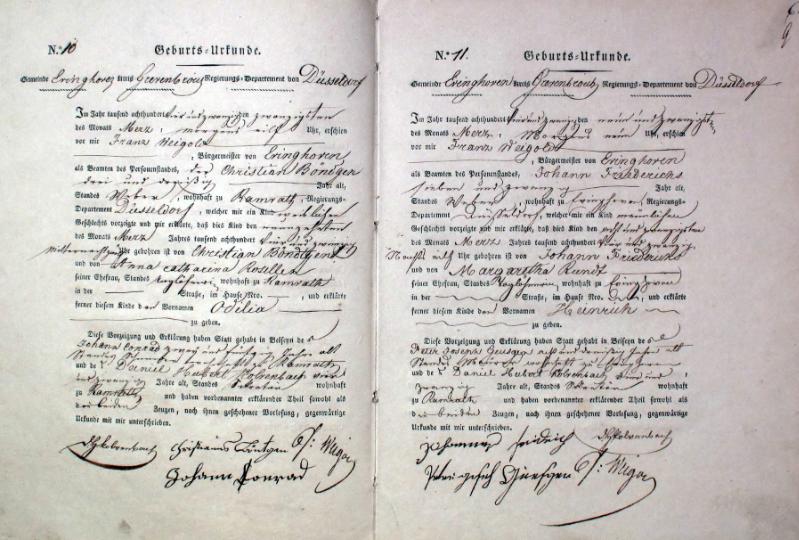 N.º 10 Geburts-Urkunde.
Gemeinde Eringhoven Kreis Regierungs-Departement von Düsseldorf
Im Jahr tausend achthundert vier und zwanzig den zwanzigsten
des Monats Merz, morgens Uhr, erschien
vor mir Franz Weigold
, Bürgermeister von Eringhoven
als Beamten des Personenstandes, der Christian Böndgen
drei und dreißig Jahr alt,
Standes Weber, wohnhaft zu Ramrath, Regierungs-
Departement Düsseldorf, welcher mir ein Kind weiblichen
Geschlechts vorzeigte und mir erklärte, daß dies Kind den neunzehnten
des Monats Merz Jahres tausend achthundert vier und zwanzig
Mitternacht Uhr geboren ist von Christian Böndgen
und von Anna Catharina Rosellen
seiner Ehefrau, Standes wohnhaft zu Ramrath
in der Straße, im Hause Nro. , und erklärte
ferner diesem Kinde den Vornamen Odilia
zu geben.
Diese Vorzeigung und Erklärung haben Statt gehabt in Beiseyn des
Johann Conrad zwey und fünfzig Jahren alt
Standes wohnhaft zu Ramrath
und des Daniel Hubert vier
und zwanzig Jahre alt, Standes Sekretair wohnhaft
zu Ramrath und haben vorbenannter erklärender Theil sowohl als
die beiden Zeugen, nach ihnen geschehener Vorlesung, gegenwärtige
Urkunde mit mir unterschrieben.
Christianus Böntgen
Johann Conrad
N.º 11. Geburts-Urkunde.
Gemeinde Eringhoven Kreis Regierungs-Departement von Düsseldorf
Im Jahr tausend achthundert vier und zwanzig den neun und zwanzigsten
des Monats Merz, Morgens neun Uhr, erschien
vor mir Franz Weigold
, Bürgermeister von Eringhoven
als Beamten des Personenstandes, Johann Friederichs
sieben und zwanzig Jahr alt,
Standes Weber, wohnhaft zu Eringhoven, Regierungs-
Departement Düsseldorf, welcher mir ein Kind männlichen
Geschlechts vorzeigte und mir erklärte, daß dies Kind den acht und zwanzigsten
des Monats Merz Jahres tausend achthundert vier und zwanzig
Nachts Uhr geboren ist von Johann Friederichs
und von Margaretha Rundt
seiner Ehefrau, Standes wohnhaft zu Eringhoven
in der Straße, im Hause Nro. , und erklärte
ferner diesem Kinde den Vornamen Heinrich
zu geben.
Diese Vorzeigung und Erklärung haben Statt gehabt in Beiseyn des
Peter Joseph acht und dreißig Jahren alt
Standes wohnhaft zu Eringhoven
und des Daniel Hubert vier und
zwanzig Jahre alt, Standes Sekretair wohnhaft
zu Ramrath und haben vorbenannter erklärender Theil sowohl als
die beiden Zeugen, nach ihnen geschehener Vorlesung, gegenwärtige
Urkunde mit mir unterschrieben.